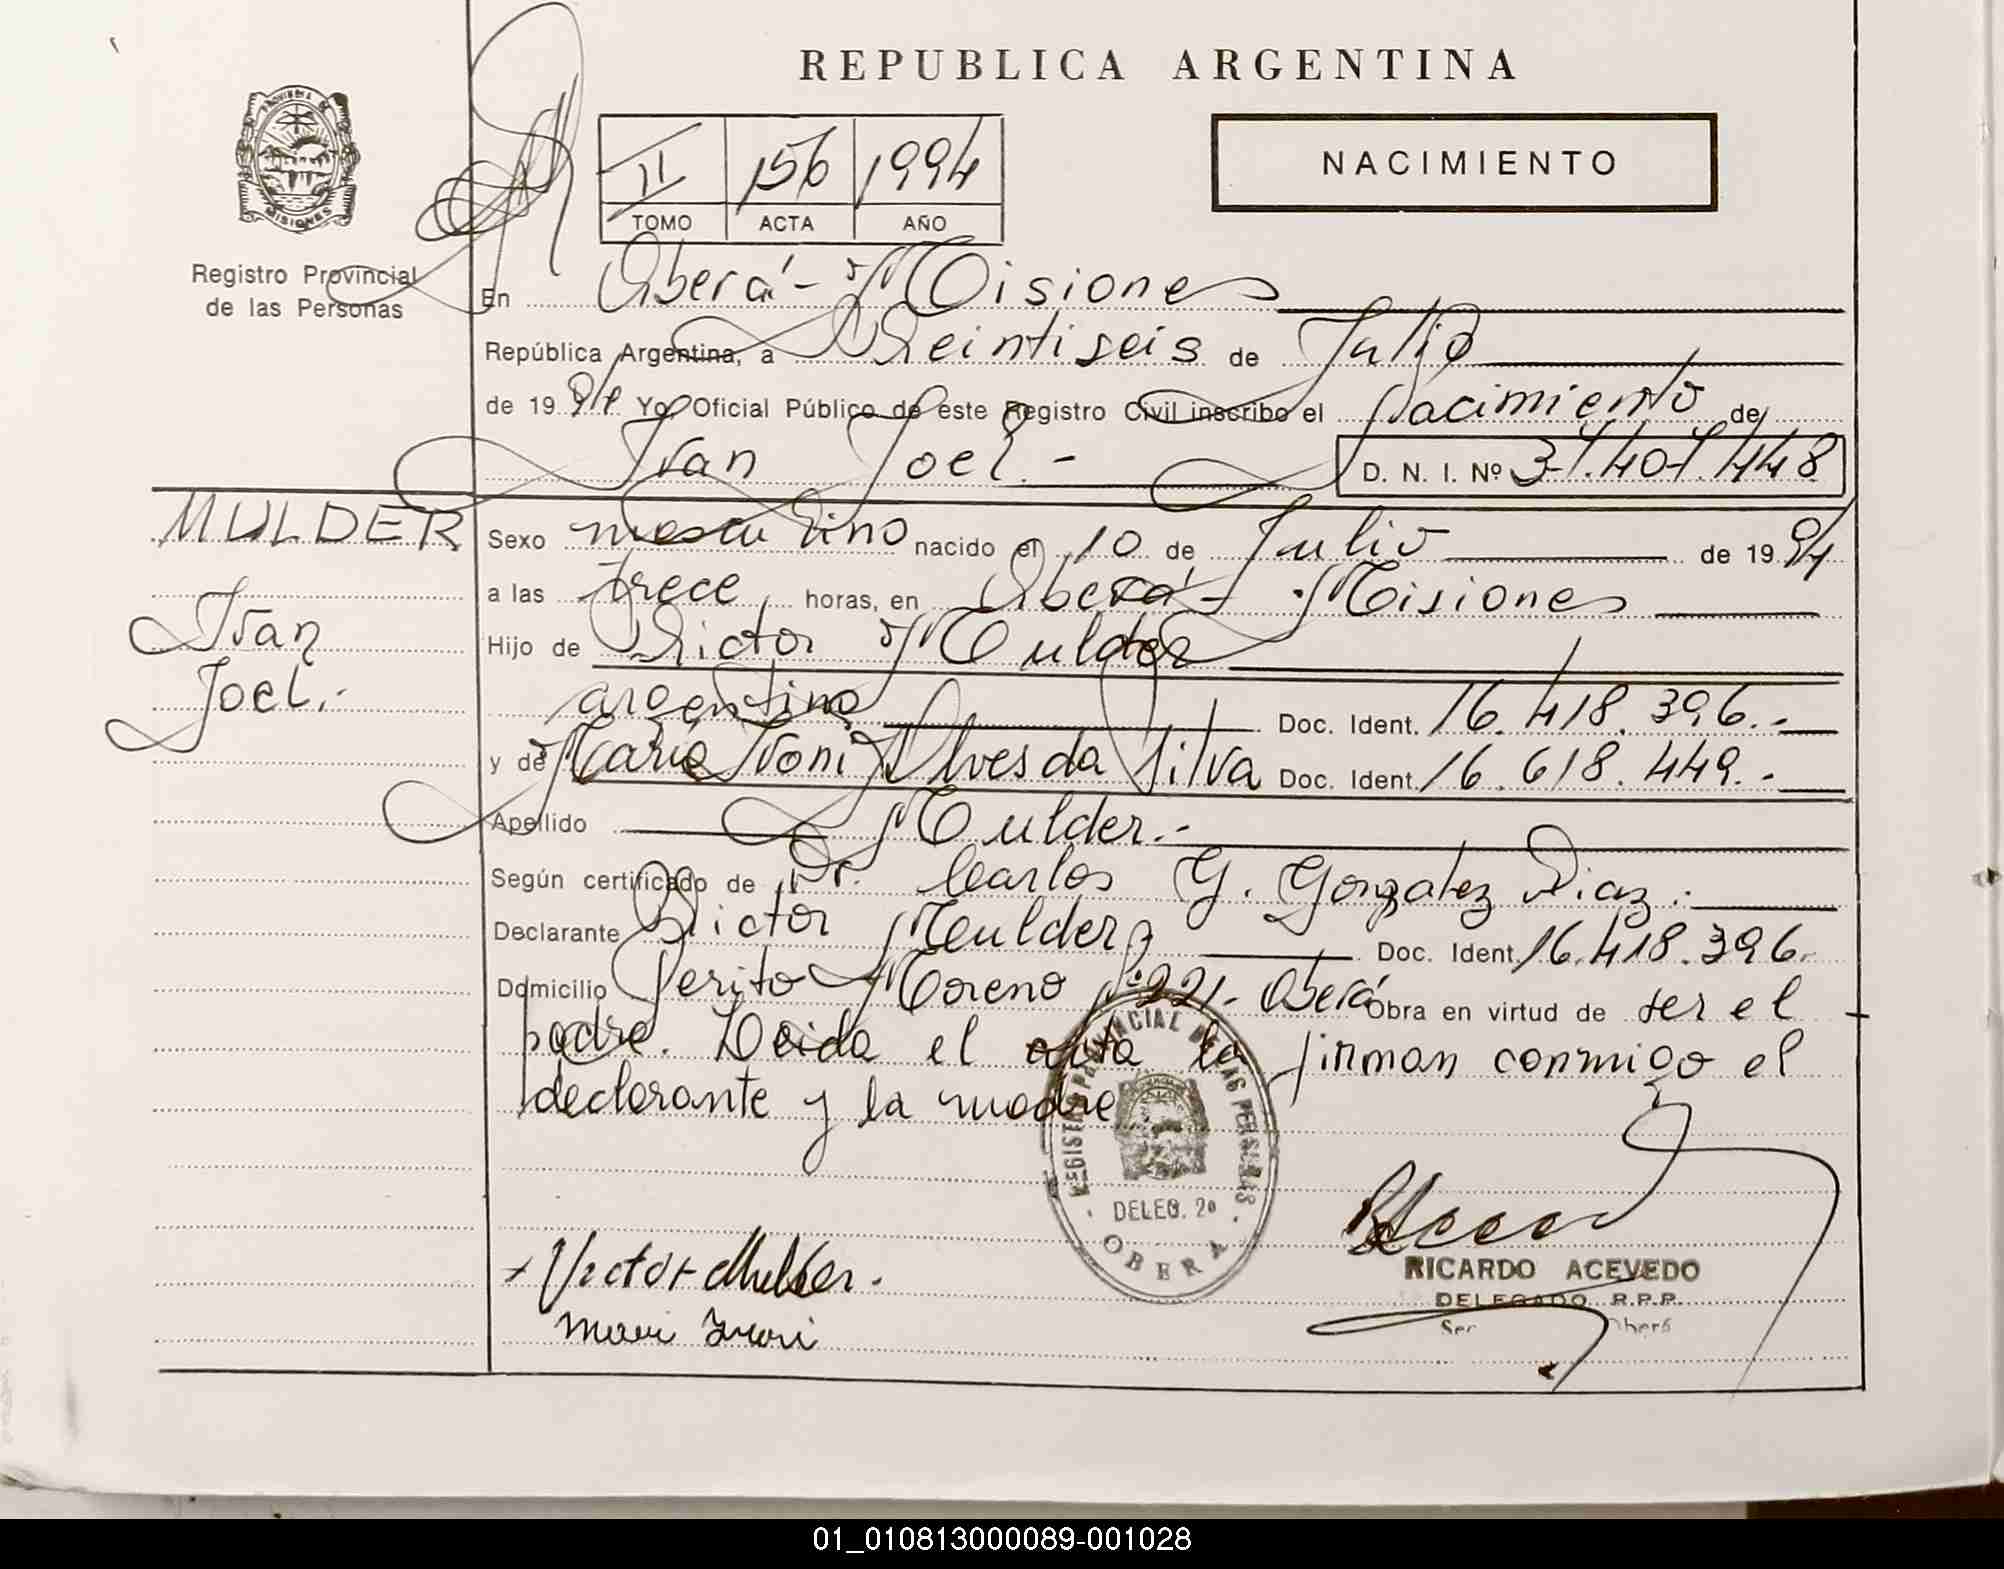 REPUBLICA ARGENTINA
PROVINCIA DE
MISIONES
Registro Provincial
de las Personas
II 156 1994
TOMO ACTA AÑO
NACIMIENTO
En Oberá - Misiones
República Argentina, a Veintiseis de Julio
de 1994 Yo, Oficial Público de este Registro Civil inscribo el Nacimiento de
Ivan Joel.-
D. N. I. Nº 37.407.448
MULDER
Ivan
Joel.-
Sexo masculino nacido el 10 de Julio de 1994
a las trece horas, en Oberá - Misiones
Hijo de Victor Mulder
argentino Doc. Ident. 16.418.396.-
y de María Ivoni Alves da Silva Doc. Ident. 16.618.449.-
Apellido Mulder.-
Según certificado de Dr. Carlos G. Gonzalez Diaz.
Declarante Victor Mulder Doc. Ident. 16.418.396.
Domicilio Perito Moreno Nº 221- Oberá Obra en virtud de ser el
padre. Leida el acta la firman conmigo el
declarante y la madre
REGISTRO PROVINCIAL DE LAS PERSONAS
DELEG. 2ª
OBERA
Victor Mulder.
RICARDO ACEVEDO
DELEGADO R.P.P.
Oberá
01_010813000089-001028